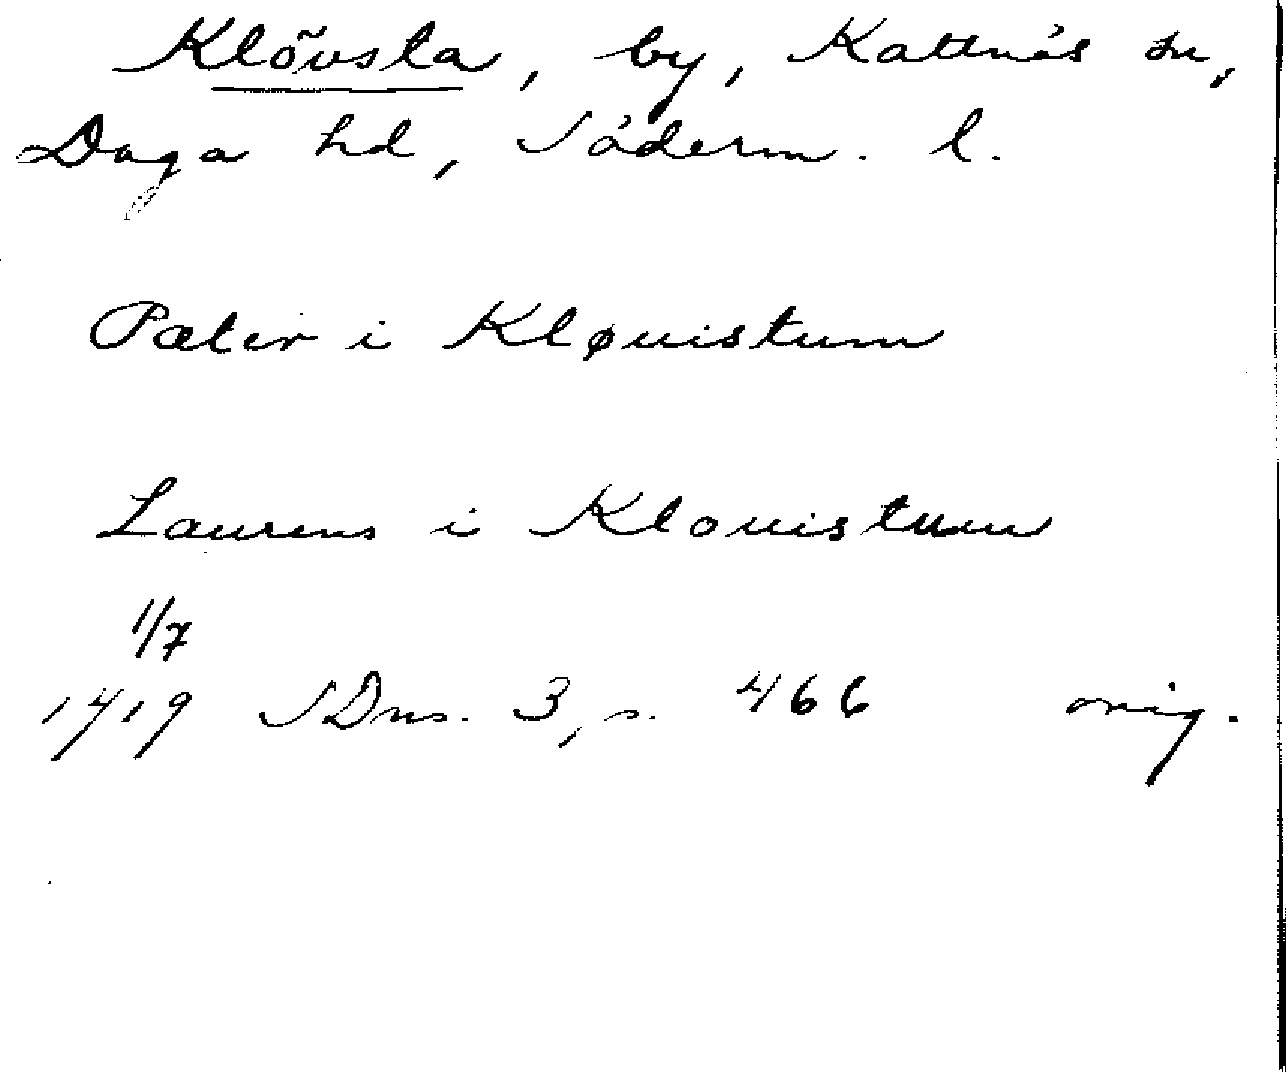 Klövsta, by, Kattnäs sn,
Daga hd, Söderm. l.
Pæter i Kløuistum
Laurens i Klouistum
1/7
1419 SDns. 3, s. 466 orig.